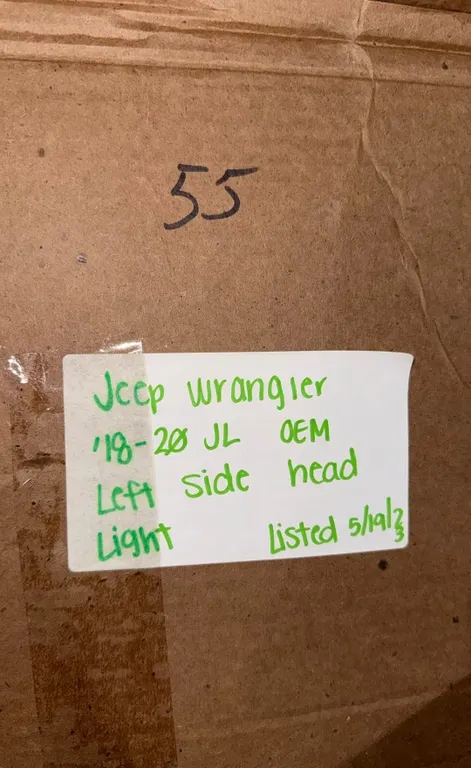 55
Jeep Wrangler
'18-20 JL OEM
Left side head
Light Listed 5/19/23